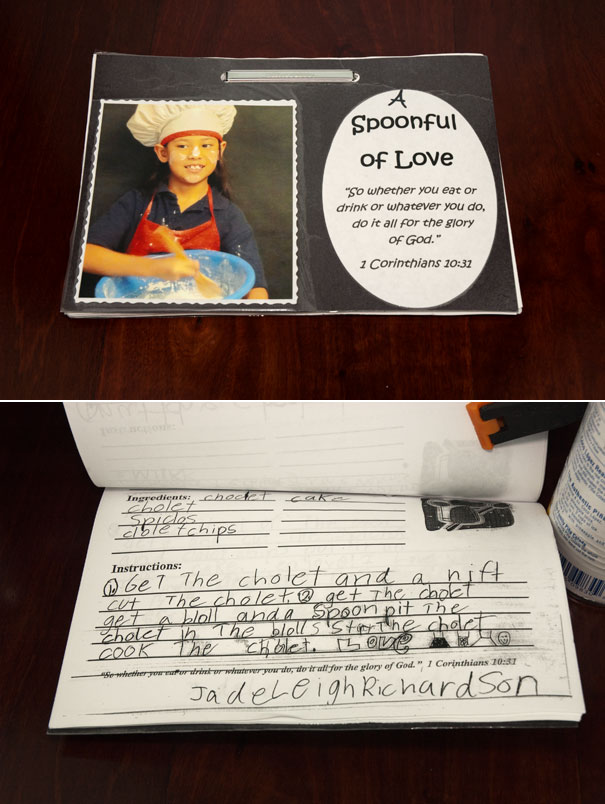 A
Spoonful
of Love
"So whether you eat or
drink or whatever you do,
do it all for the glory
of God."
1 Corinthians 10:31
Instructions:
Ingredients: choclet cake
cholet
Spiclos
chips
Instructions:
① GeT The cholet and a nift
cut The cholet ② get The cholet
get a bloll anda Spoon pit The
cholet in The blolls The cholet
cook The cholet.
"So whether you eat or drink or whatever you do, do it all for the glory of God." 1 Corinthians 10:31
JadeLeighRichardSon